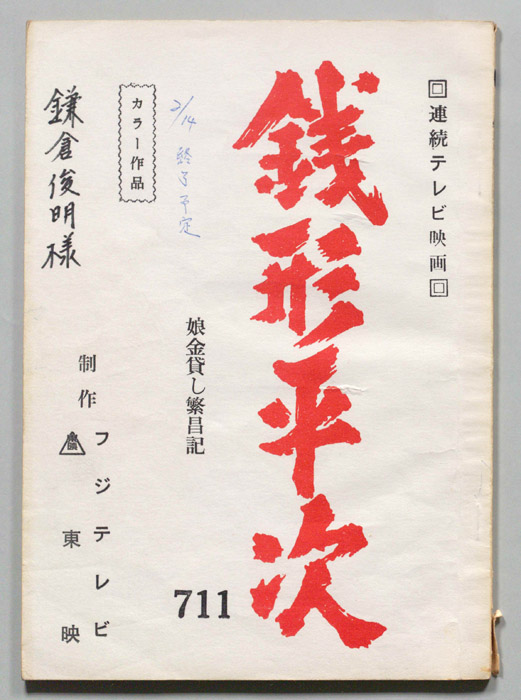 連続テレビ映画
銭形平次
娘金貸し繁昌記
711
2/14 終了予定
カラー作品
鎌倉俊明様
制作
フジテレビ
東映